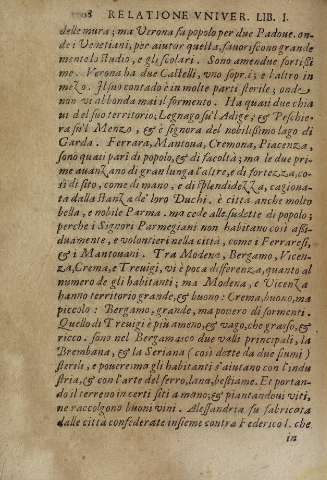 RELATIONE VNIVER. LIB. I.
delle mura; ma Verona fa popolo per due Padoue. on-
de i Venetiani, per aiutar quella, fauoriscono grande
mente lo studio, e gli scolari. Sono amendue fortissi
me. Verona ha due Castelli, vno sopra; e l'altro in
mezo. Il suo contado è in molte parti sterile; onde
non vi abbonda mai il formento. Ha quasi due chia
ui del suo territorio, Legnago sù l'Adige; & Peschie-
ra sù'l Menzo, & è signora del nobilissimo lago di
Garda. Ferrara, Mantoua, Cremona, Piacenza,
sono quasi pari di popolo, & di facoltà; ma le due pri-
me auanzano di gran lunga l'altre, e di fortezza, co-
sì di sito, come di mano. e di splendidezza, cagiona-
ta dalla stanza de' loro Duchi. è città anche molto
bella, e nobile Parma. ma cede alle sudette di popolo;
perche i Signori Parmegiani non habitano così assi-
duamente, e volontieri nella città, come i Ferraresi,
& i Mantouani. Tra Modena, Bergamo, Vicen-
za, Crema, e Treuigi, vi è poca differenza, quanto al
numero de gli habitanti; ma Modena, e Vicenza
hanno territorio grande, & buono: Crema, buono, ma
piccolo: Bergamo, grande, ma pouero di formenti.
Quello di Treuigi è più ameno, & vago, che grasso, &
ricco. sono nel Bergamasco due valli principali, la
Brembana, & la Seriana (così dette da due fiumi)
sterili, e pouere: ma gli habitanti s'aiutano con l'indu
stria, & con l'arte del ferro, lana, bestiame. Et portan-
do il terreno in certi siti a mano, & piantandoui viti,
ne raccolgono buoni vini. Alessandria fu fabricata
dalle città confederate insieme contra Federico I. che
in